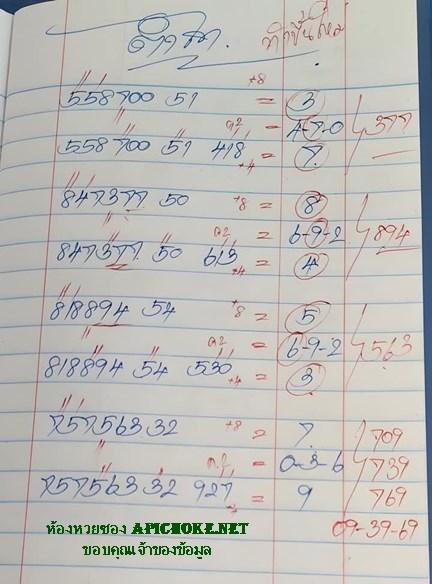 ทำขึ้นใหม่
558700 51 +8 = 3
ล2 = 4-7-0 377
558700 51 418 +4 = 7
847377. 50 +8 = 8
ล2 = 6-9-2 894
847377. 50 613 +4 = 4
818894 54 +8 = 5
ล2 = 6-9-2 563
818894 54 530 +4 = 3
757563 32 +8 = 7 709
ล.2 = 0-3-6 739
757563 32 927 = 9 769
09-39-69
ห้องหวยซอง APICHOKE.NET
ขอบคุณเจ้าของข้อมูล